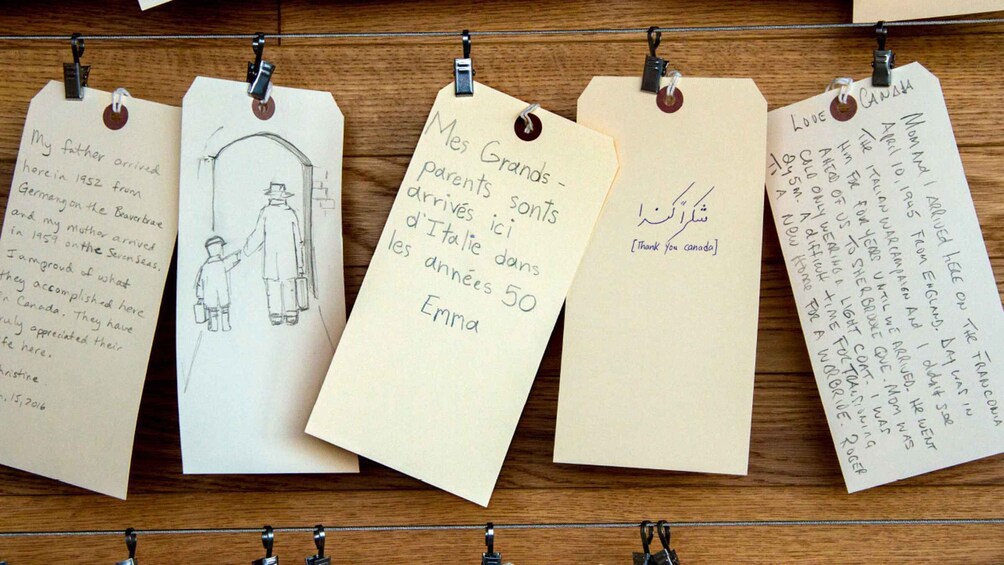 My father arrived
here in 1952 from
Germany on the Beaverbrae
and my mother arrived
in on the Seven Seas.
I am proud of what
they accomplished here
in Canada. They have
truly appreciated their
life here.
Christine
15, 2016
Mes Grands-
parents sonts
arrivés ici
d'Italie dans
les années 50
Emma
شكراً كندا
[Thank you canada]
LOVE CANADA
MOM AND I ARRIVED HERE ON THE FRANCONIA
APRIL 10, 1945 FROM ENGLAND. DAD WAS IN
THE ITALIAN WAR CAMPAIGN AND I DIDN'T SEE
HIM FOR FOR YEARS UNTIL WE ARRIVED. HE WENT
AHEAD OF US TO SHERBROOKE QUE. MOM WAS
COLD ONLY WEARING A LIGHT COAT. I WAS
A DIFFICULT TIME FOR TRANSITIONING
TO A NEW HOME FOR A WARBRIDE. ROGER